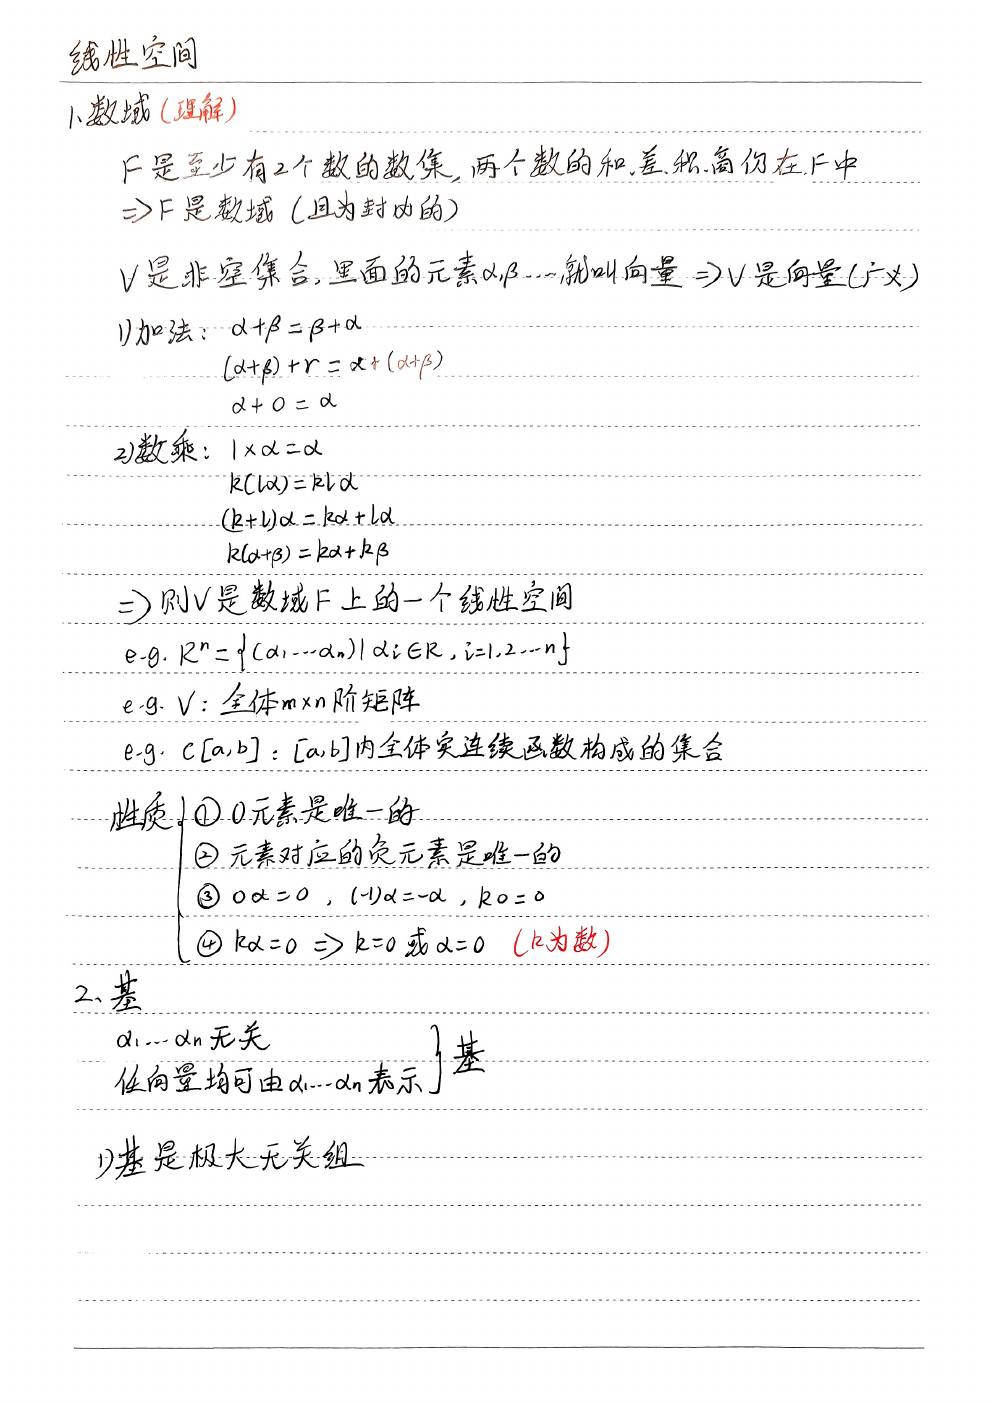 线性空间
1、数域(理解)
F是至少有2个数的数集,两个数的和、差、积、商仍在F中
⇒F是数域(且为封闭的)
V是非空集合,里面的元素α,β…,就叫向量⇒V是向量(广义)
1)加法: α+β=β+α
(α+β)+r=α+(α+β)
α+0=α
2)数乘: 1×α=α
k(lα)=klα
(k+l)α=kα+lα
k(α+β)=kα+kβ
⇒则V是数域F上的一个线性空间
e.g. Rⁿ={(α₁…αn)|αi∈R,i=1.2…n}
e.g. V:全体m×n阶矩阵
e.g. C[a,b]:[a,b]内全体实连续函数构成的集合
性质 ① 0元素是唯一的
② 元素对应的负元素是唯一的
③ 0α=0, (-1)α=-α, k0=0
④ kα=0 ⇒ k=0 或 α=0 (k为数)
2、基
α₁…αn无关
任向量均可由α₁…αn表示 } 基
1)基是极大无关组